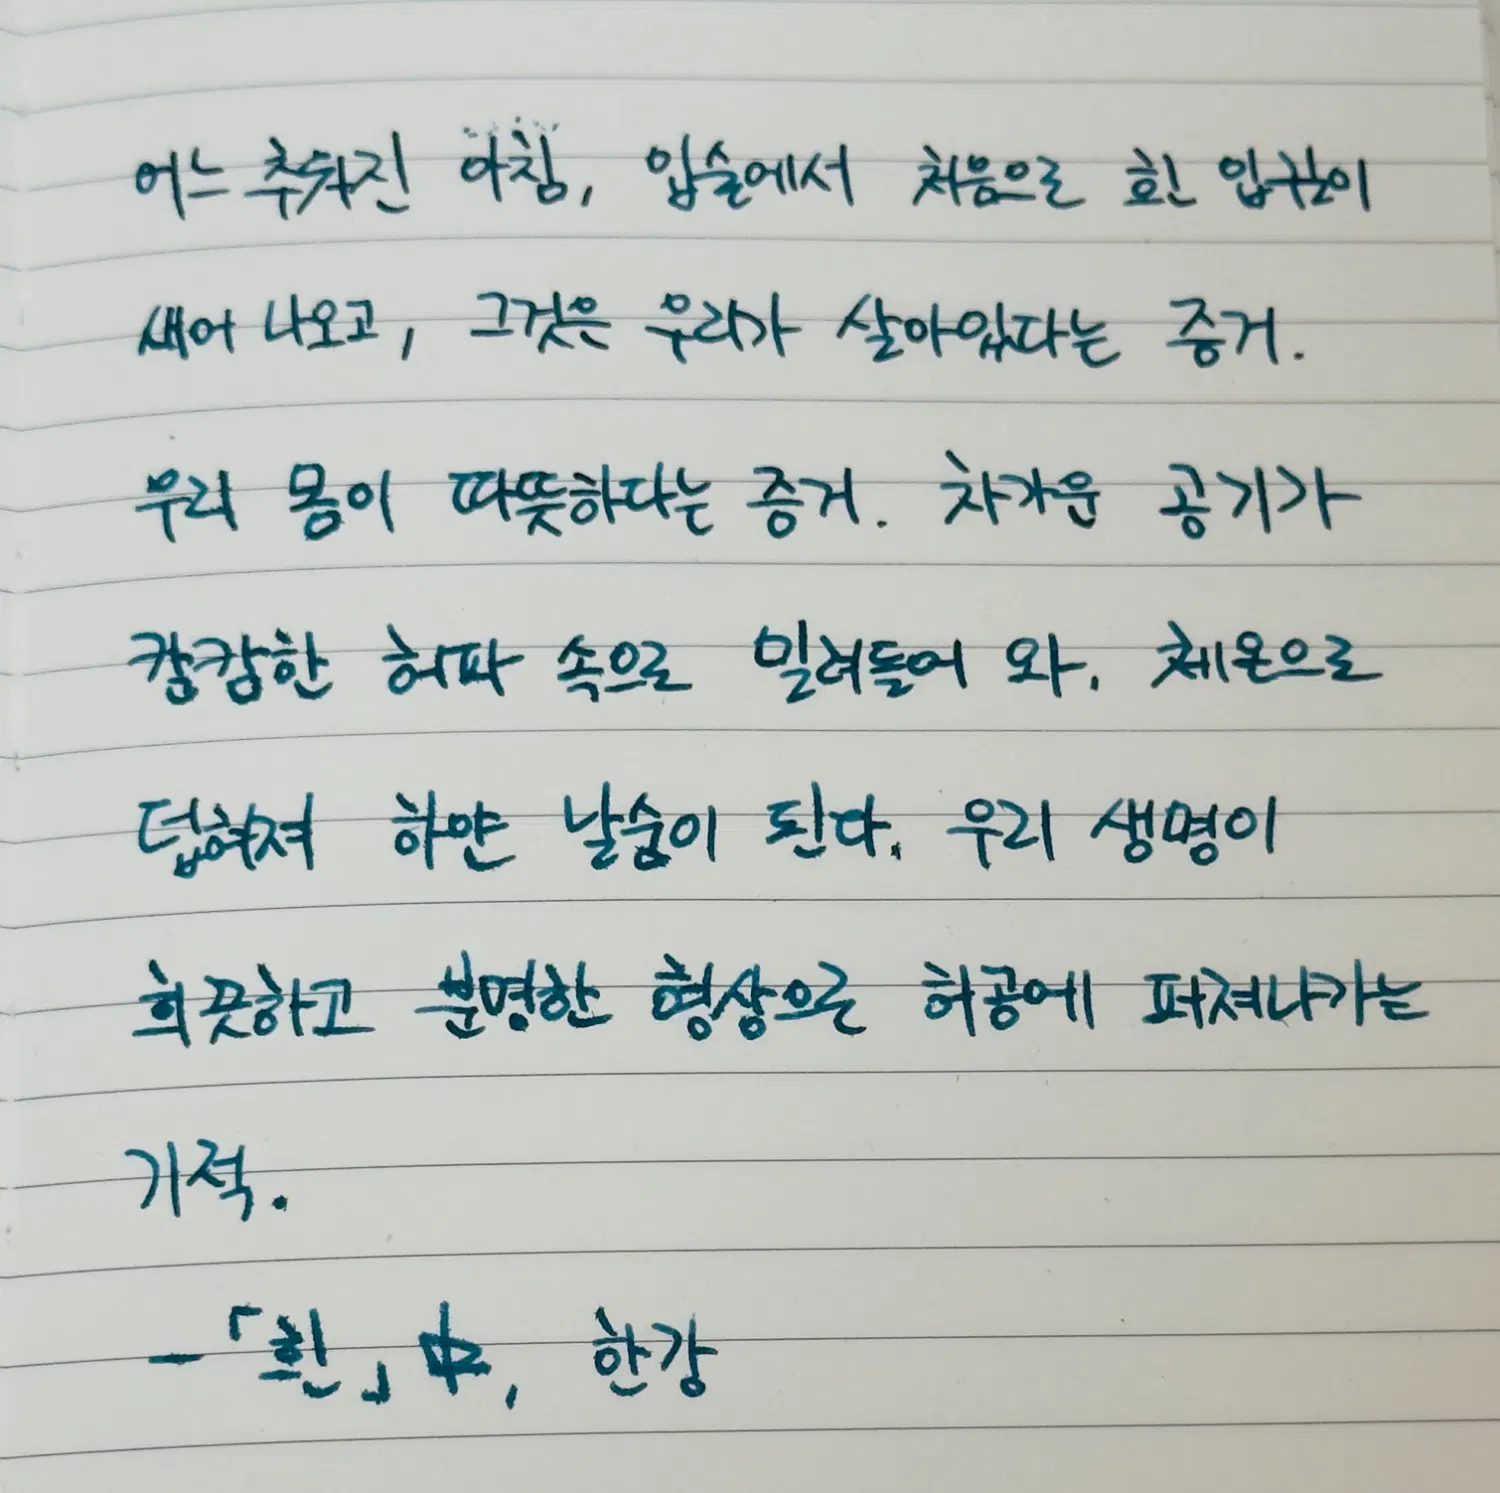 어느 추워진 아침, 입술에서 처음으로 흰 입김이
새어 나오고, 그것은 우리가 살아있다는 증거.
우리 몸이 따뜻하다는 증거. 차가운 공기가
캄캄한 허파 속으로 밀려들어 와. 체온으로
덥혀져 하얀 날숨이 된다. 우리 생명이
희끗하고 분명한 형상으로 허공에 퍼져나가는
기적.
-「흰」中, 한강